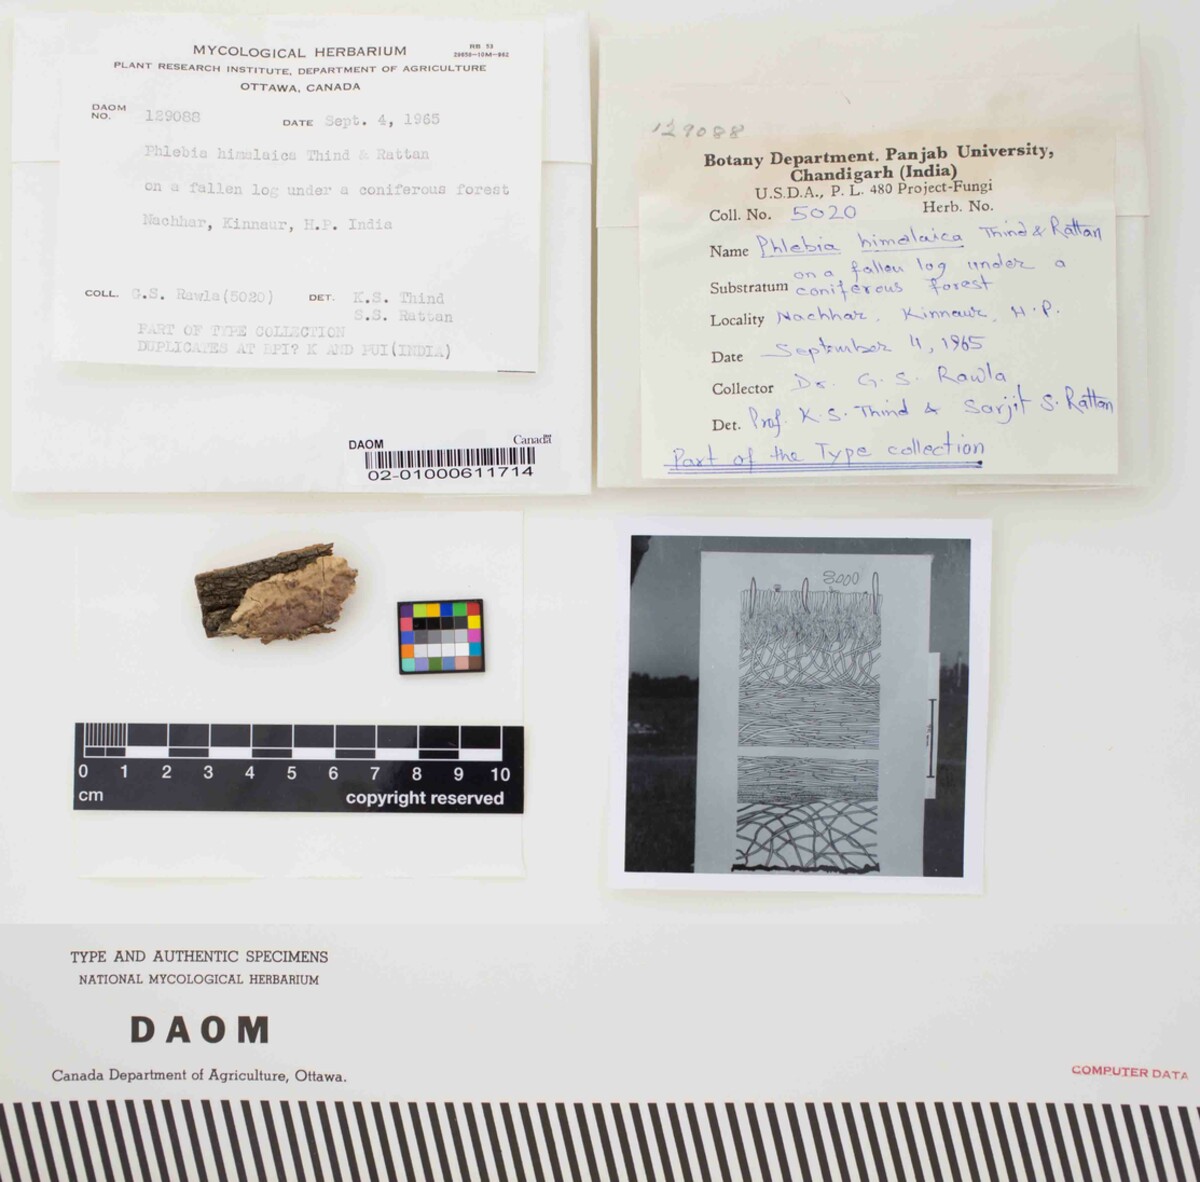 MYCOLOGICAL HERBARIUM
RB 53
PLANT RESEARCH INSTITUTE, DEPARTMENT OF AGRICULTURE
OTTAWA, CANADA
DAOM NO. 129088 DATE Sept. 4, 1965
Phlebia himalaica Thind & Rattan
on a fallen log under a coniferous forest
Nachhar, Kinnaur, H.P. India
COLL. G.S. Rawla(5020) DET. K.S. Thind
S.S. Rattan
PART OF TYPE COLLECTION
DUPLICATES AT BPI? K AND PUI(INDIA)
DAOM Canada
02-01000611714
129088
Botany Department. Panjab University,
Chandigarh (India)
U.S.D.A., P. L. 480 Project-Fungi
Coll. No. 5020 Herb. No.
Name Phlebia himalaica Thind & Rattan
Substratum on a fallen log under a
coniferous forest
Locality Nachhar, Kinnaur, H.P.
Date September 4, 1965
Collector Dr. G. S. Rawla
Det. Prof. K.S. Thind & Sarjit S. Rattan
Part of the Type collection
8000
0 1 2 3 4 5 6 7 8 9 10
cm copyright reserved
TYPE AND AUTHENTIC SPECIMENS
NATIONAL MYCOLOGICAL HERBARIUM
DAOM
Canada Department of Agriculture, Ottawa.
COMPUTER DATA